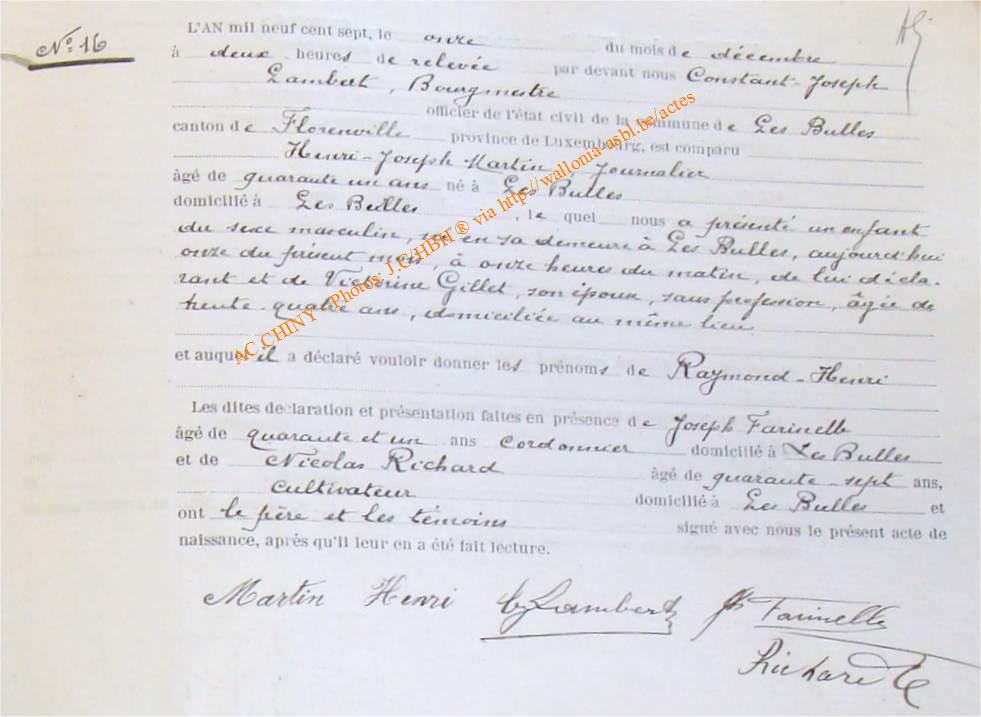 N° 16
L'AN mil neuf cent sept, le onze du mois de décembre
à deux heures de relevée par devant nous Constant-Joseph
Lambert, Bourgmestre
officier de l'état civil de la commune de Les Bulles
canton de Florenville province de Luxembourg, est comparu
Henri-Joseph Martin, Journalier
âgé de quarante un ans né à Les Bulles
domicilié à Les Bulles, le quel nous a présenté un enfant
du sexe masculin, né en sa demeure à Les Bulles, aujourd'hui
onze du présent mois, à onze heures du matin, de lui décla-
rant et de Victorine Gillet, son épouse, sans profession, âgée de
trente-quatre ans, domiciliée au même lieu
et auquel il a déclaré vouloir donner les prénoms de Raymond-Henri
Les dites declaration et présentation faites en présence de Joseph Farinelle
âgé de quarante et un ans cordonnier domicilié à Les Bulles
et de Nicolas Richard âgé de quarante-sept ans,
cultivateur domicilié à Les Bulles et
ont le père et les témoins signé avec nous le présent acte de
naissance, après qu'il leur en a été fait lecture.
Martin Henri Lambert Farinelle
Richard
AC CHINY - Photos: J.C/HBH ® via http://wallonia-asbl.be/actes